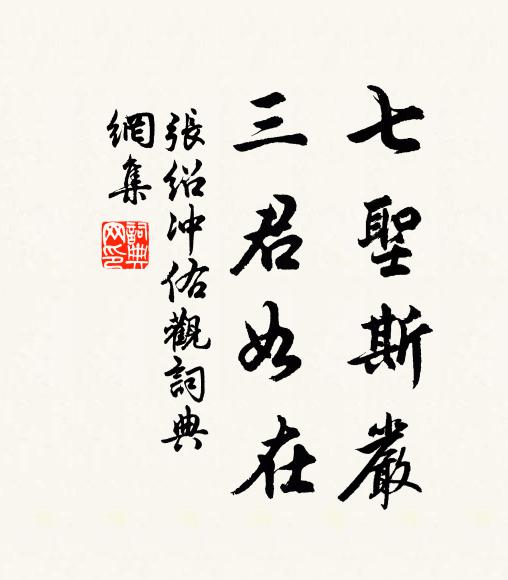 七聖斯嚴
三君如在
張紹沖佑觀詞典
網集
詞典
网印